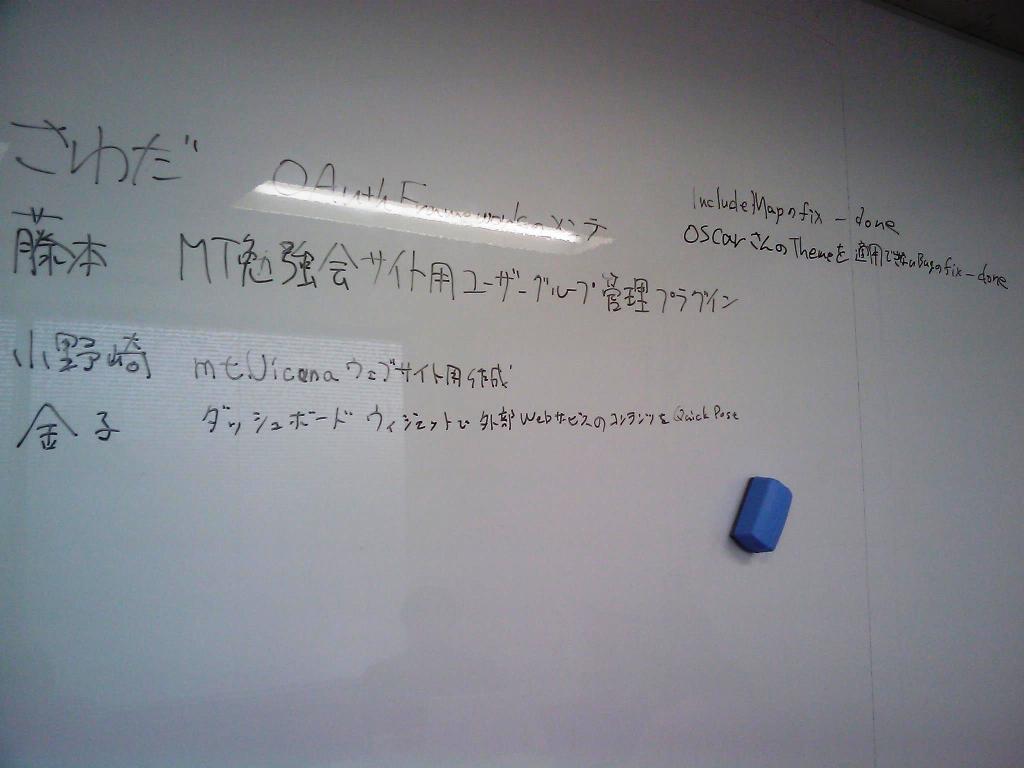 さわだ OAuth Frameworkのメンテ
藤本 MT勉強会サイト用ユーザーグループ管理プラグイン
小野崎 ウェブサイト用作成
金子 ダッシュボードウィジェットで外部WebサービスのコンテンツをQuick Post
IncludeMapのfix - done
OSCarさんのThemeを適用できないBugのfix - done